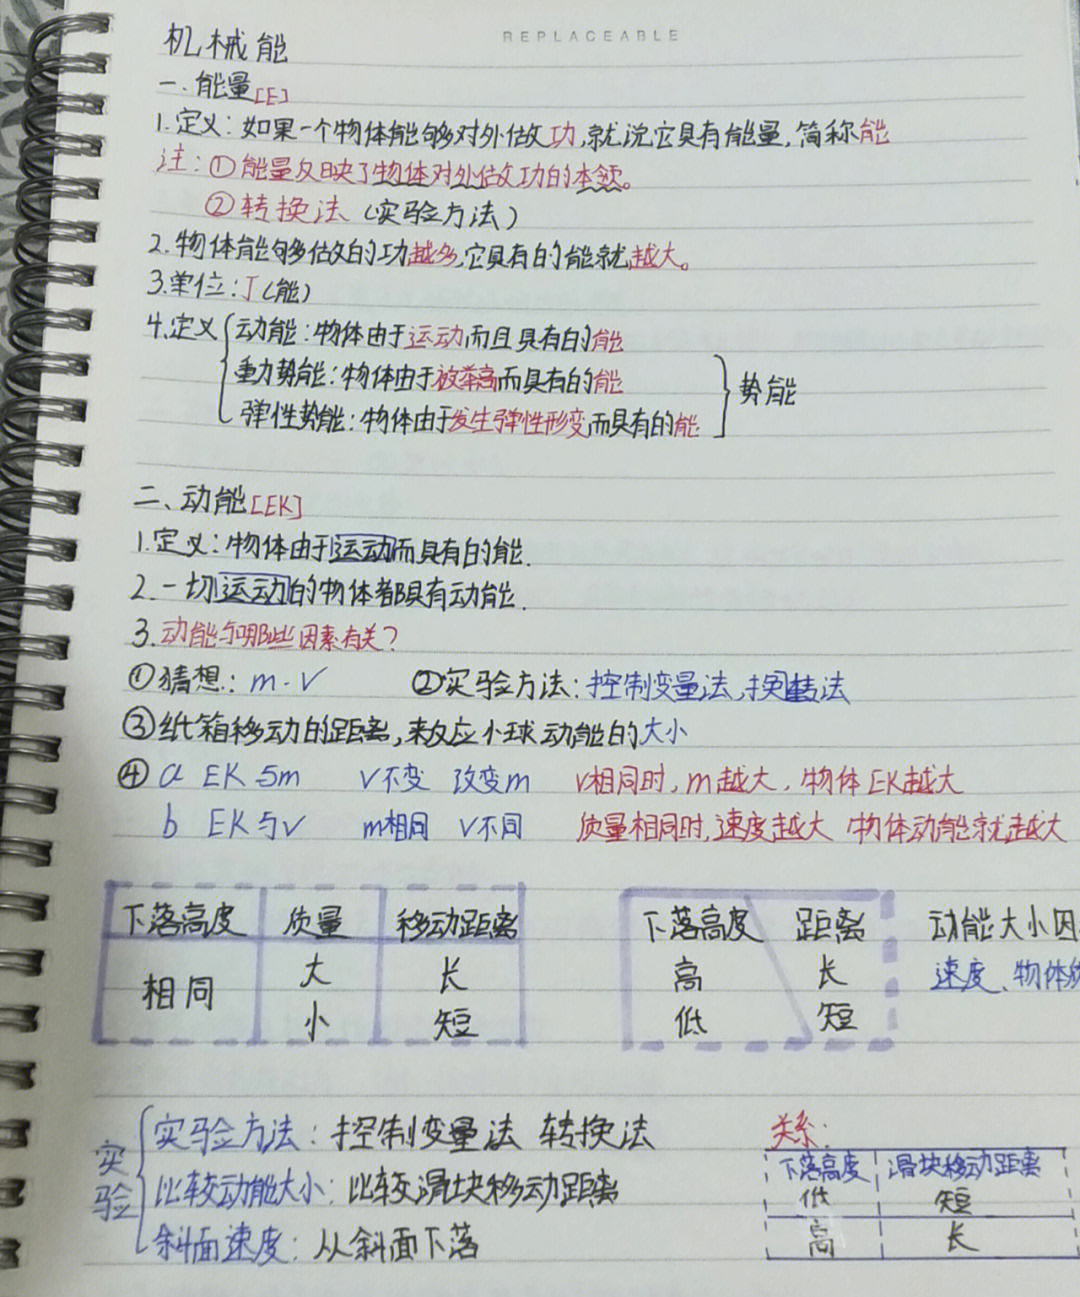 REPLACEABLE
机械能
一.能量[E]
1.定义:如果一个物体能够对外做功,就说它具有能量,简称能
注:①能量反映了物体对外做功的本领。
②转换法(实验方法)
2.物体能够做的功越多,它具有的能就越大。
3.单位:J(能)
4.定义 动能:物体由于运动而且具有的能
重力势能:物体由于被举高而具有的能
势能
弹性势能:物体由于发生弹性形变而具有的能
二、动能[EK]
1.定义:物体由于运动而具有的能.
2.一切运动的物体都具有动能.
3.动能与哪些因素有关?
①猜想:m.v ②实验方法:控制变量法,换转法
③纸箱移动的距离,来反应小球动能的大小
④ a EK与m v不变 改变m v相同时,m越大,物体EK越大
b EK与v m相同 v不同 质量相同时,速度越大 物体动能就越大
下落高度 质量 移动距离
相同 大 长
小 短
下落高度 距离
高 长
低 短
动能大小因
速度、物体
实验
实验方法:控制变量法 转换法
比较动能大小:比较滑块移动距离
斜面速度:从斜面下落
关系:
下落高度 滑块移动距离
低 短
高 长